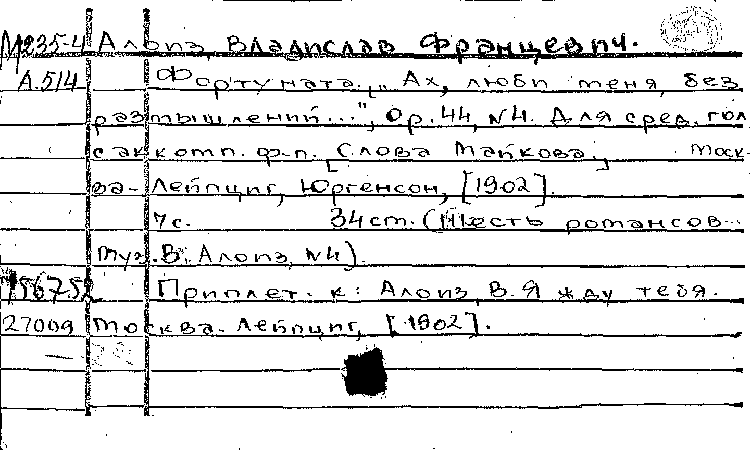 М235-4 Алоиз, Владислав Францевич.
А.514 Фортуната. „Ах, люби меня, без
размышлений...", Op. 44, N4. Для сред. гол
са к комп. ф.-п. [Слова Майкова.] Моск-
ва-Лейпциг, Юргенсон, [1902].
7 с. 34 ст. (Шесть романсов...
Муз. В. Алоиз, N4).
Приплет. к: Алоиз, В. Я жду тебя.
27009 Москва-Лейпциг, [1902].